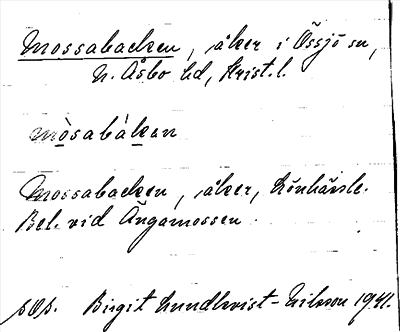 Mossabacken, åker i Össjö sn,
N. Åsbo hd, Krist. l.
mòsabàken
Mossabacken, åker,
Bel. vid Ängamossen.
sOp. Birgit Lundkvist-Nilsson 1941.